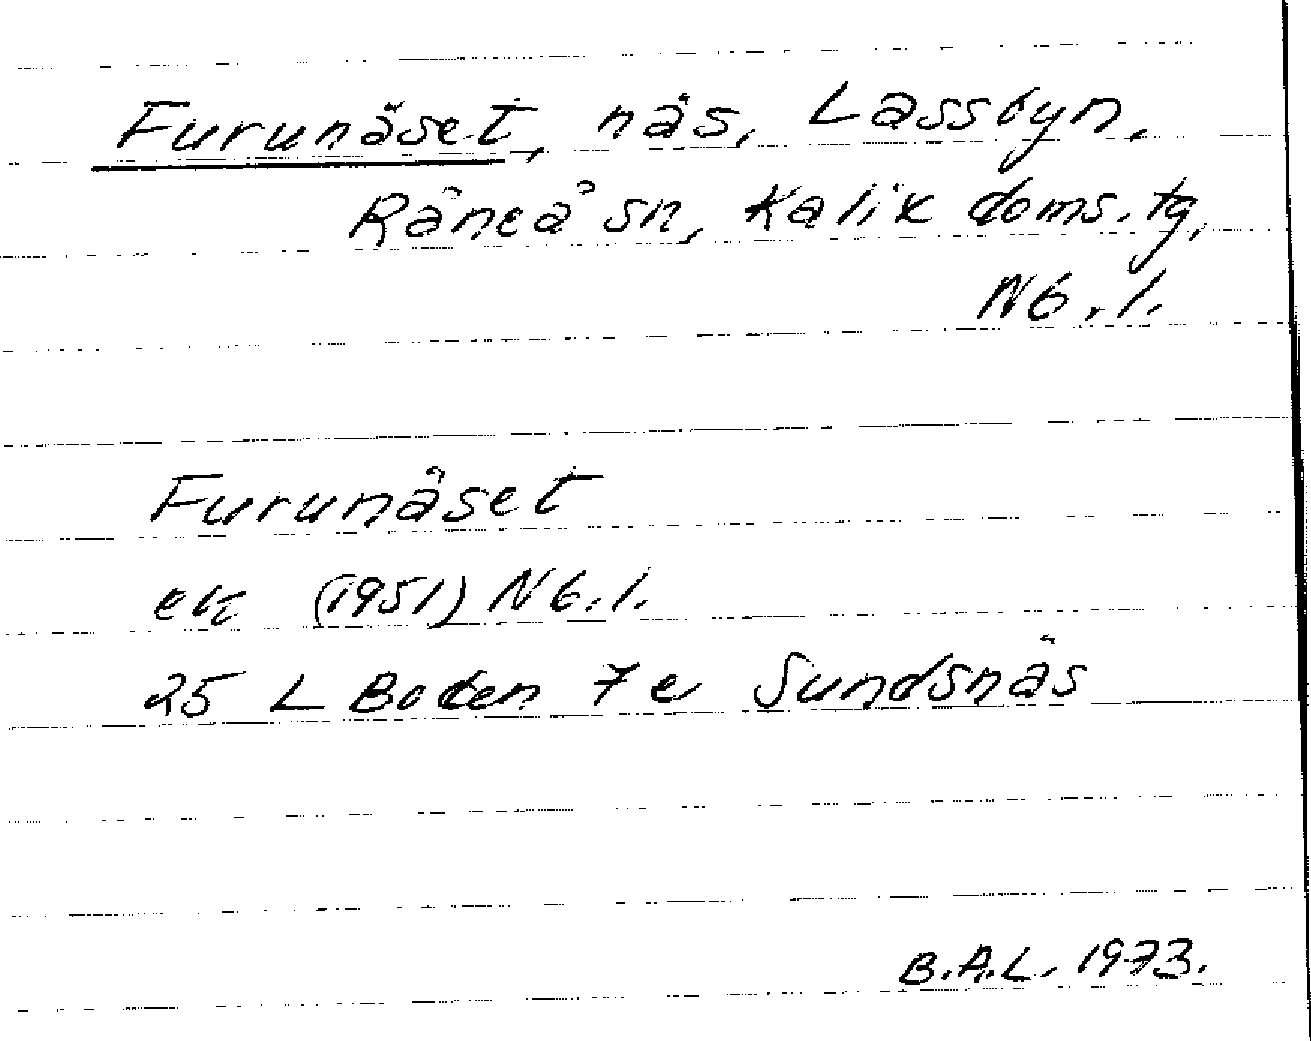 Furunäset, näs, Lassbyn,
Råneå sn, Kalix doms. tg,
Nb. l.
Furunäset
ek (1951) Nb. l.
25 L Boden 7 e Sundsnäs
B.A.L. 1973.